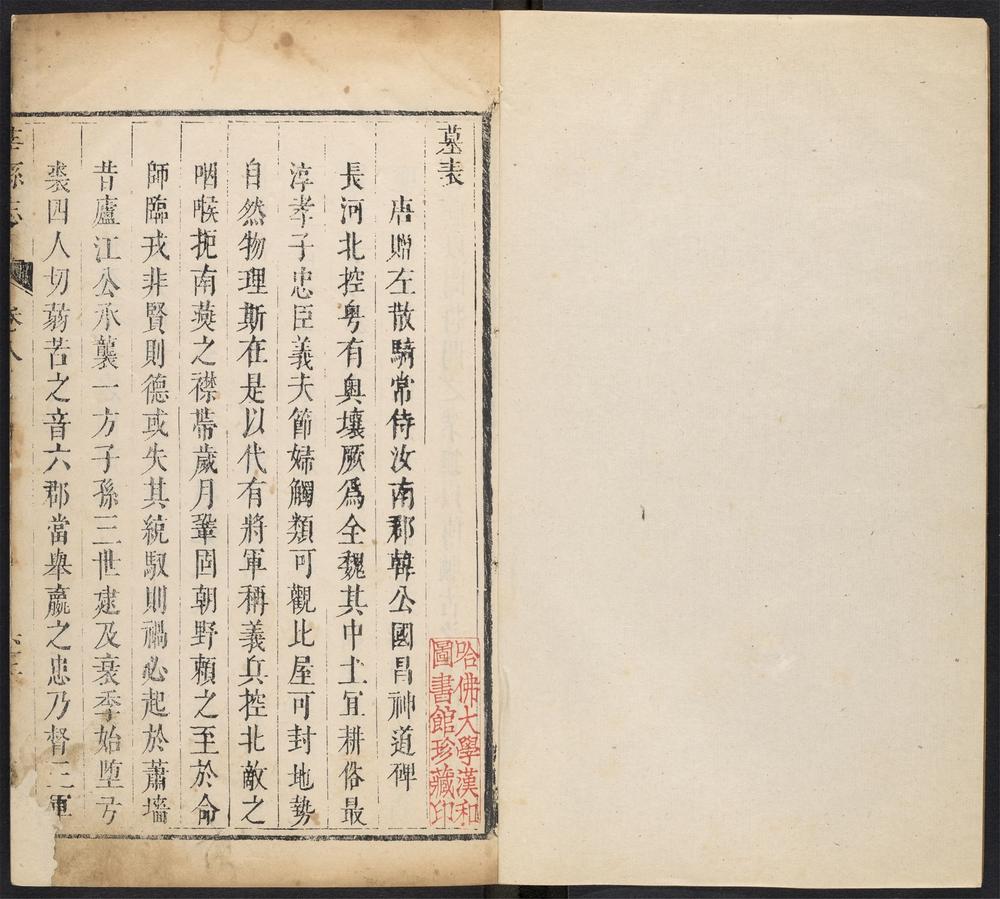 墓表
唐贈左散騎常侍汝南郡韓公國昌神道碑
長河北控粤有奥壤厥爲全魏其中土宜耕俗最
淳孝子忠臣義夫節婦觸類可觀比屋可封地勢
自然物理斯在是以代有將軍稱義兵控北敵之
咽喉扼南燕之襟帶歲月鞏固朝野賴之至於命
師臨戎非賢則德或失其統馭則禍必起於蕭墻
昔廬江公承襲一方子孫三世建及衰季始墮弓
裘四人切蒻苦之音六郡當舉嬴之忠乃督三軍
莘縣志 卷八
哈佛大學漢和
圖書館珍藏印